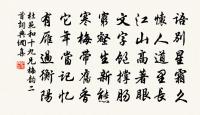 語別星霜久
懷人道里長
江山高著眼
文字撐腸
鬢生新
寒梅帶舊香
它年當記憶
有雁過衡陽
和十九兄梅韵二
首詞典網集